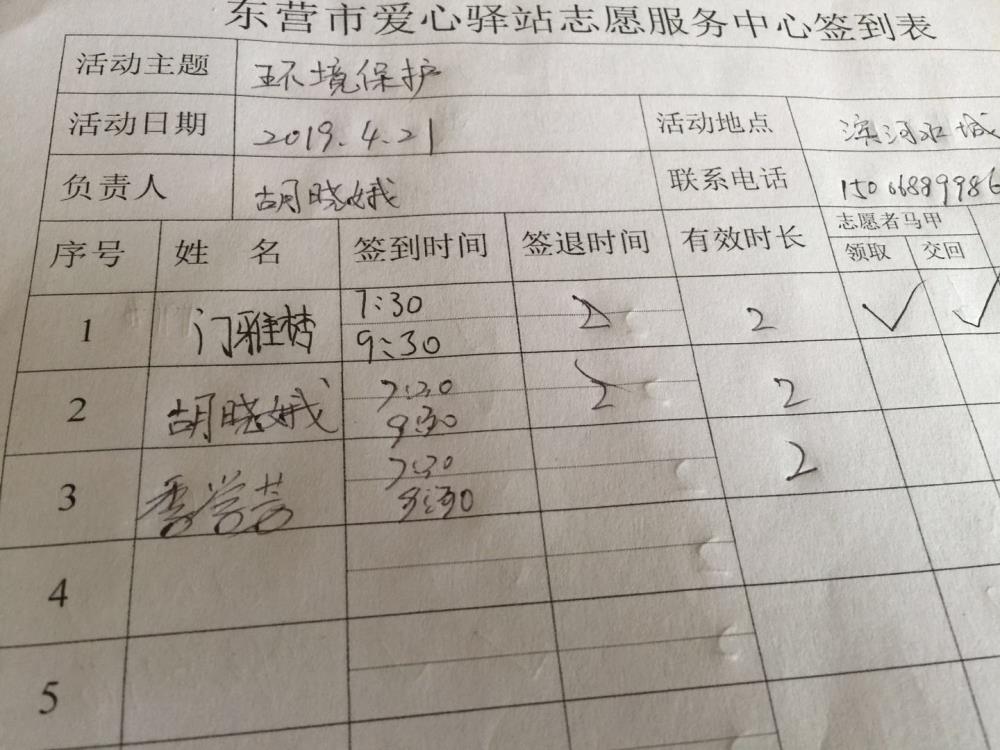 东营市爱心驿站志愿服务中心签到表
活动主题 环境保护
活动日期 2019.4.21 活动地点 滨河水城
负责人 胡晓娥 联系电话 15066889986
序号 姓 名 签到时间 签退时间 有效时长 志愿者马甲
领取 交回
1 门雅梦 7:30 2 2 ✓ ✓
9:30
2 胡晓娥 7:30 2 2
9:30
3 7:30 2
9:30
4
5